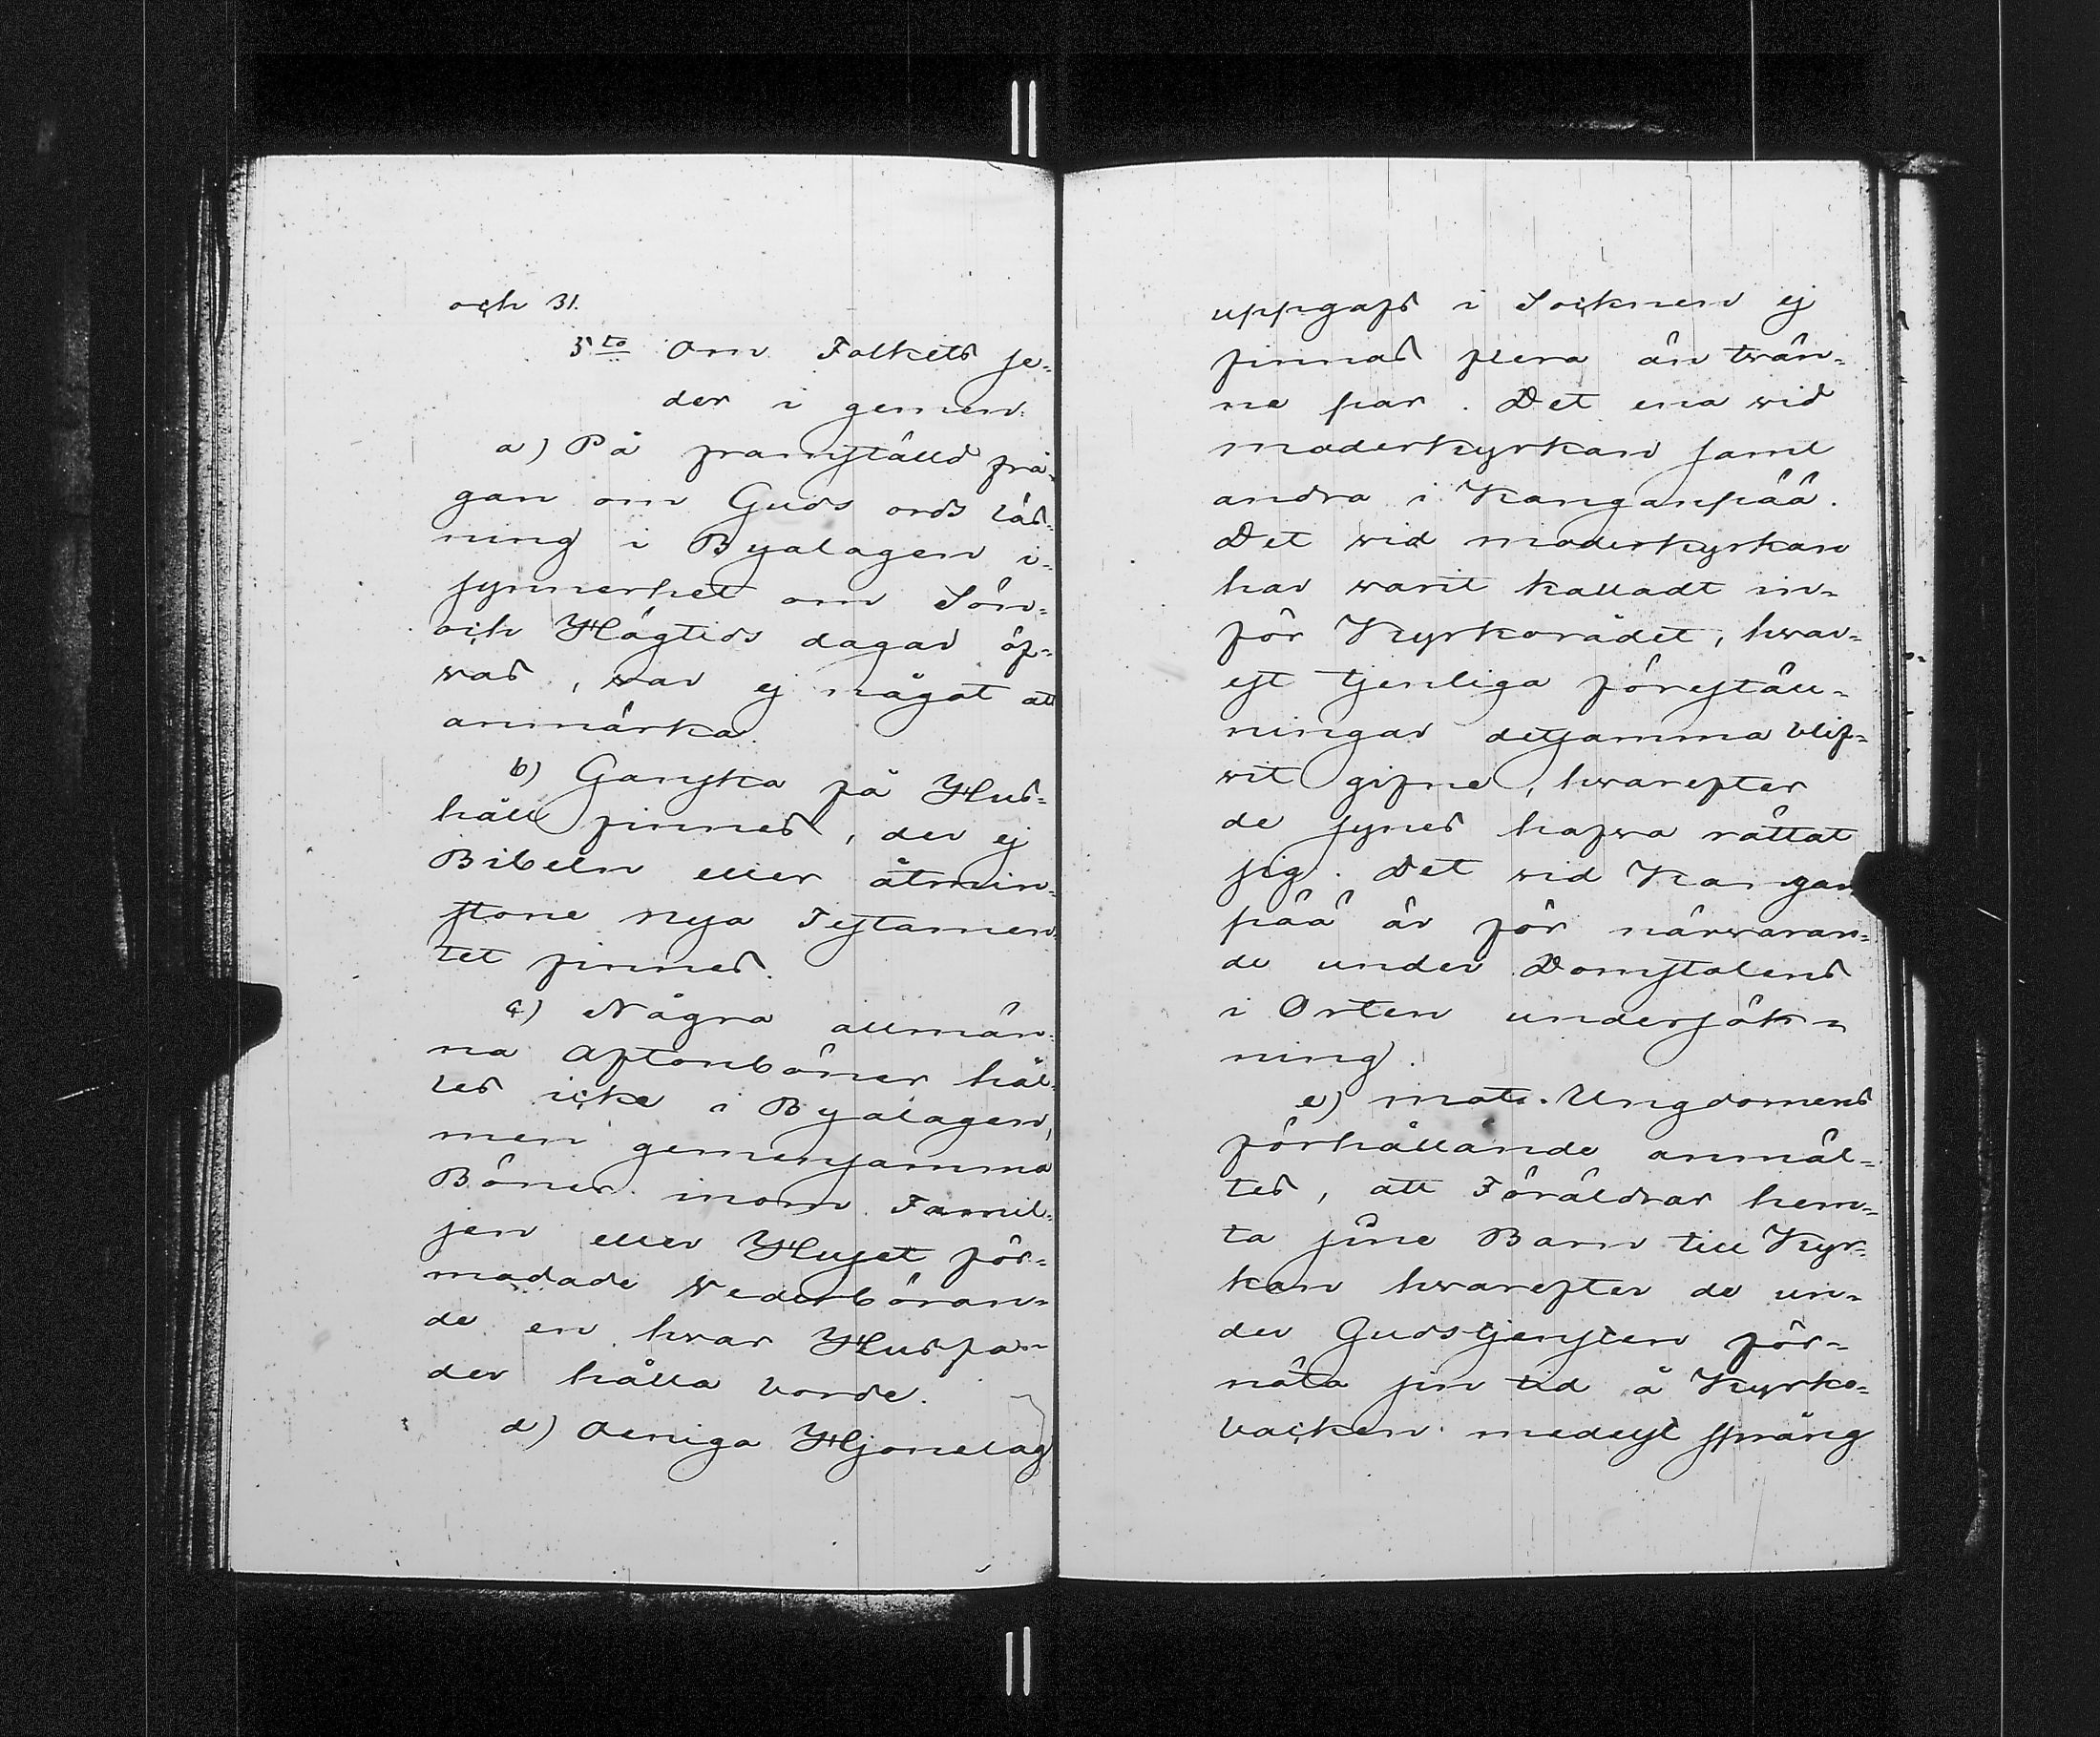 och 31.
5to Om Folkets se-
der i gemen.
a) På framställd frå-
gan om Guds ords läs-
ning i Byalagen i-
synnerhet om Sön-
och Högtids dagar öf-
vas, var ej något att
anmärka.
b) Ganska få Hus-
håll finnes, der ej
Bibeln eller åtmin-
stone nya Testamen-
tet finnes.
c) Några allmän-
na Aftonböner höl-
les icke i Byalagen,
men gemensamma
Böner inom Famil-
jen eller Huset för-
modade Vederböran-
de en hvar Husfa-
der hålla borde.
d) Oeniga Hjonelag
uppgafs i Socknen ej
finnas flera än tvän-
ne par. Det ena vid
moderkyrkan samt
andra i Kanganpää.
Det vid moderkyrkan
har varit kalladt in-
för Kyrkorådet, hvar-
est tjenliga föreställ-
ningar detsamma blif-
vit gifne, hvarefter
de synes hafva rättat
sig. Det vid Kangan
pää är för närvaran-
de under Domstolens
i Orten undersök-
ning.
e) mot. Ungdomens
förhållande anmäl-
tes, att Föräldrar hem-
ta sine Barn till Kyr-
kan hvarefter de un-
der Gudstjensten för-
nöta sin tid å Kyrko-
backen medelst språng